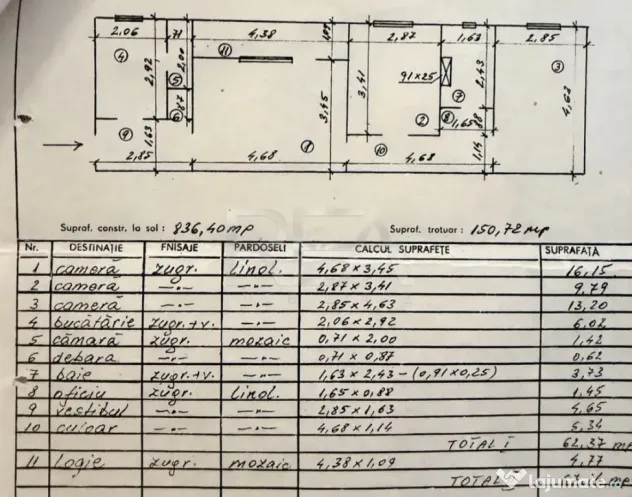 2,06 71 4,38 1,09 2,87 1,63 2,85
4 2,92 2,00 11 3,41 91×25 2,43 3
5 3,45 7 4,63
87 6 8 1,65 88
9 1,63 1 10 2 1,14
2,85 4,68 4,68
Supraf. constr. la sol : 836,40 mp Supraf. trotuar : 150,72 mp
Nr. DESTINAȚIE FINISAJE PARDOSELI CALCUL SUPRAFEȚE SUPRAFAȚĂ
1 cameră zugr. linol. 4,68 × 3,45 16,15
2 camera —"— —"— 2,87 × 3,41 9.79
3 camera —"— —"— 2,85 × 4,63 13,20
4 bucătărie zugr.+v. —"— 2,06 × 2,92 6,02
5 cămară zugr. mozaic 0,71 × 2,00 1,42
6 debara —"— —"— 0,71 × 0,87 0,62
7 baie zugr.+v. —"— 1,63 × 2,43 – (0,91×0,25) 3,73
8 oficiu zugr. linol. 1,65 × 0,88 1,45
9 vestibul —"— —"— 2,85 × 1,63 4,65
10 culoar —"— —"— 4,68 × 1,14 5,34
TOTAL I 62,37 mp
11 logie zugr. mozaic 4,38 × 1,09 4,77
TOTAL
lajumate.ro